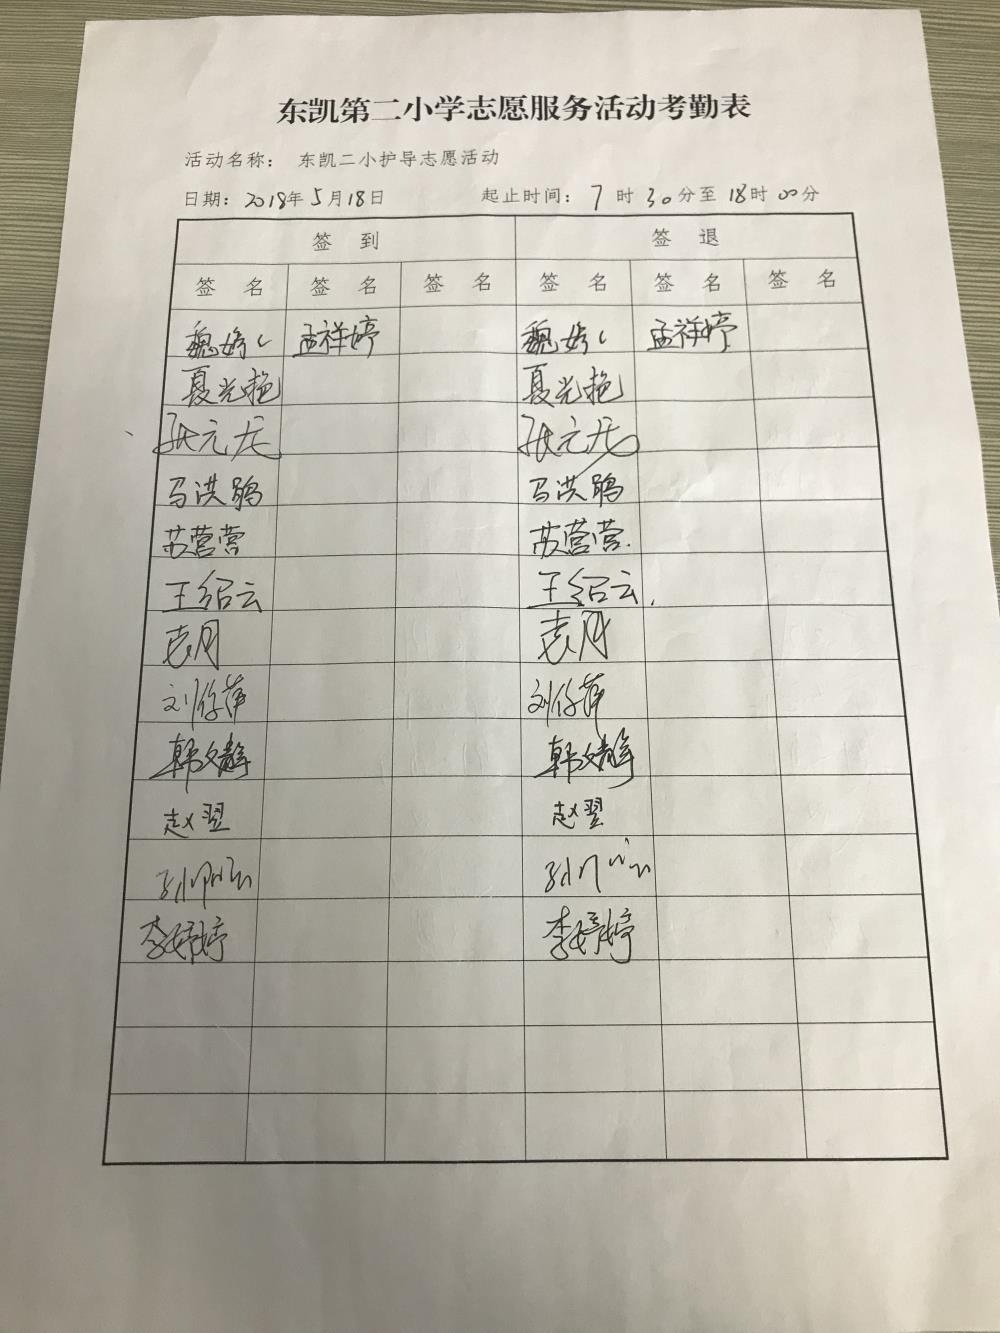 东凯第二小学志愿服务活动考勤表
活动名称： 东凯二小护导志愿活动
日期：2018年5月18日 起止时间：7时30分至18时00分
签 到 签 退
签 名 签 名 签 名 签 名 签 名 签 名
魏娇 孟祥婷 魏娇 孟祥婷
夏光艳 夏光艳
张元龙 张元龙
马洪鹃 马洪鹃
苏营营 苏营营
王绍云 王绍云
袁月 袁月
刘 萍 刘 萍
韩文静 韩文静
赵翌 赵翌
孙 孙
李婷婷 李婷婷